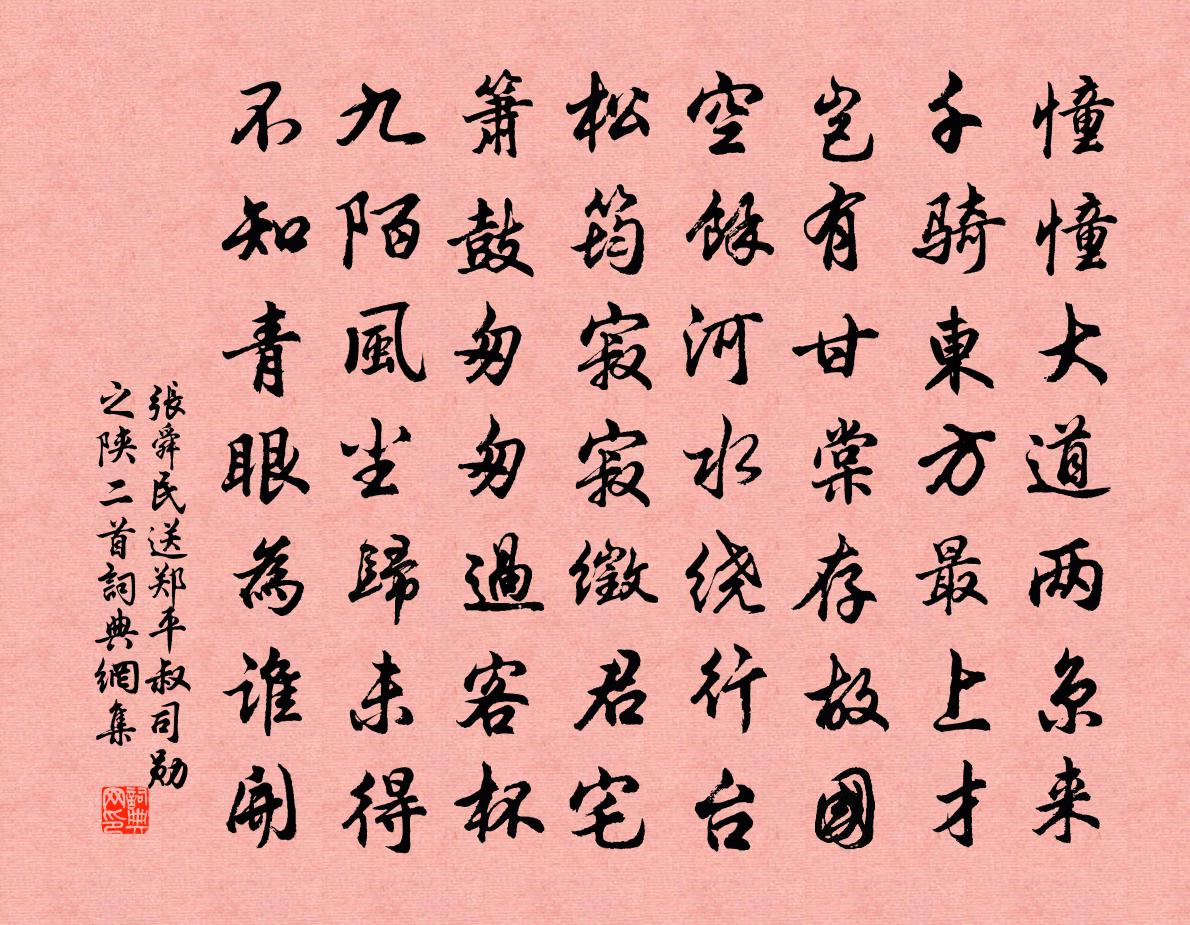 憧憧大道两京来
千骑東方最上才
岂有甘棠存故國
空餘河水绕行台
松筠寂寂徵君宅
箫鼓匆匆過客杯
九陌風尘歸未得
不知青眼為谁開
張舜民送郑平叔司勋
之陕二首詞典網集
詞典
网印